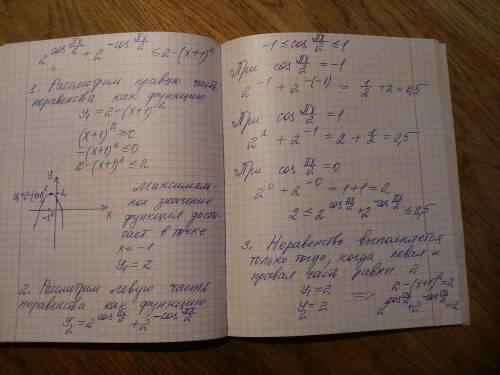 2^(cos πx/2) + 2^(-cos πx/2) ≤ 2-(x+1)²
1. Рассмотрим правую часть
неравенства как функцию
y₁ = 2-(x+1)²
(x+1)² ≥ 0
-(x+1)² ≤ 0
2-(x+1)² ≤ 2
y
y₁=2-(x+1)²
2
-1
x
Максималь-
ное значение
функция дости-
гает в точке
x = -1
y₁ = 2
2. Рассмотрим левую часть
неравенства как функцию
y₂ = 2^(cos πx/2) + 2^(-cos πx/2)
-1 ≤ cos πx/2 ≤ 1
При cos πx/2 = -1
2^(-1) + 2^(-(-1)) = 1/2 + 2 = 2,5
При cos πx/2 = 1
2^1 + 2^(-1) = 2 + 1/2 = 2,5
При cos πx/2 = 0
2^0 + 2^(-0) = 1+1 = 2
2 ≤ 2^(cos πx/2) + 2^(-cos πx/2) ≤ 2,5
3. Неравенство выполняется
только тогда, когда левая и
правая часть равны 2
y₁ = 2 ⟹ 2-(x+1)² = 2
y₂ = 2 2^(cos πx/2) + 2^(-cos πx/2) = 2